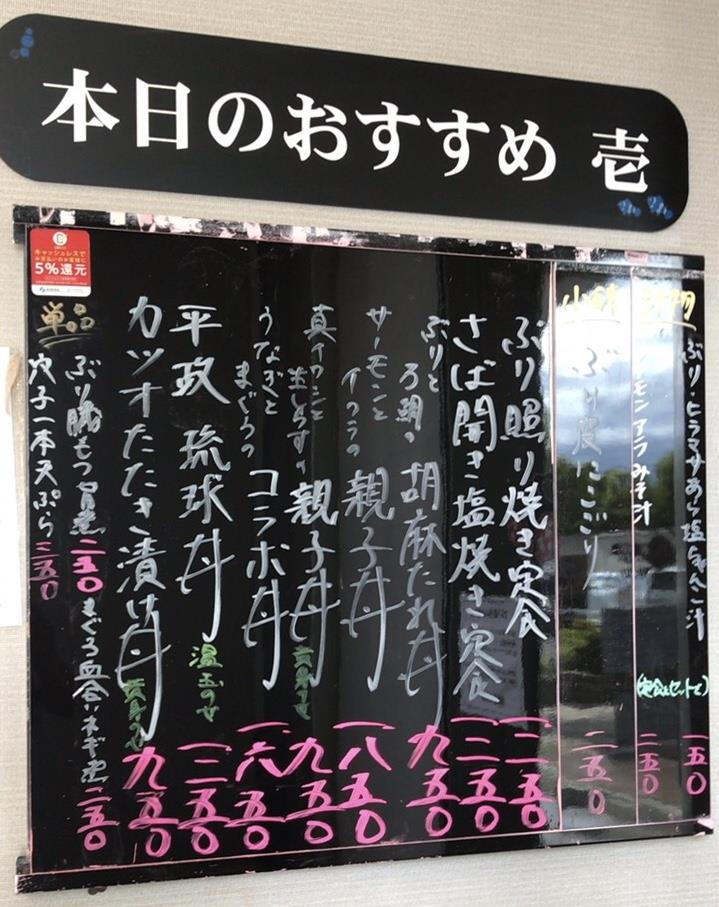 本日のおすすめ 壱
キャッシュレスで
お支払いのお客様に
5%還元
ぶり・ヒラマサあら塩ちゃんこ汁
一五〇
モンアラみそ汁
(定食とセットで)
二五〇
小
ぶり皮にこごり
二五〇
ぶり照り焼き定食
一二五〇
さば開き塩焼き定食
一二五〇
ぶりと
ろ鯛の
胡麻たれ丼
九五〇
サーモンと
イクラの
親子丼
一八五〇
真イワシと
生しらすの
親子丼
九五〇
うなぎと
まぐろの
コラボ丼
一六五〇
平政 琉球丼
温玉のせ
一二五〇
カツオたたき漬け丼
九五〇
単品
ぶり勝もつ旨煮 二五〇
まぐろ血合いネギ煮 二五〇
穴子一本天ぷら 三五〇